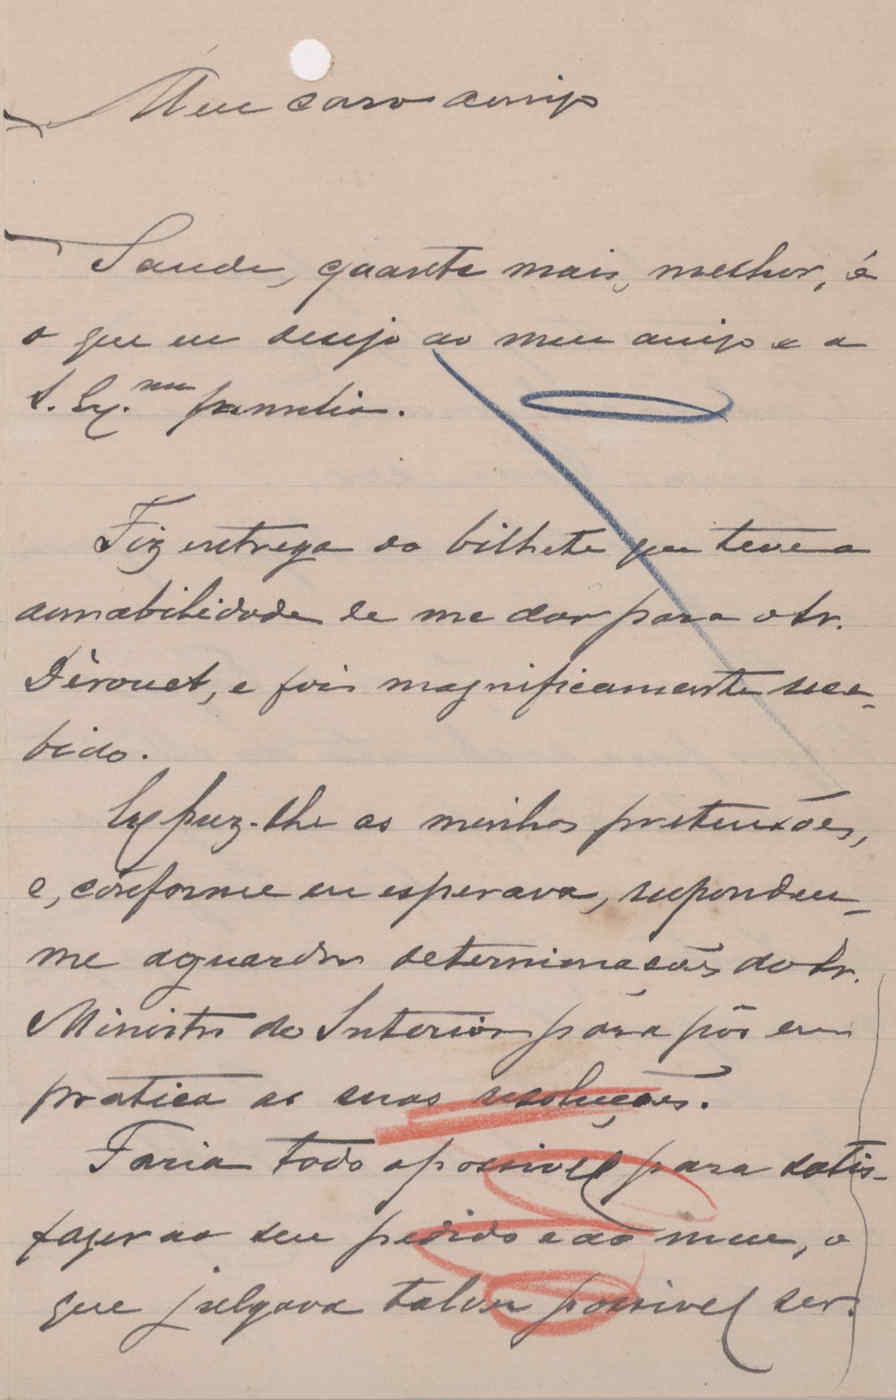 Meu caro amigo
Saude, quanto mais, melhor, é
o que eu desejo ao meu amigo e a
S. Ex.ma familia.
Fiz entrega do bilhete que teve a
amabilidade de me dar para o Sr.
Dérouet, e fois magnificamente rece-
bido.
Expuz-lhe as minhas pretensões,
e, conforme eu esperava, respondeu-
me aguardar determinações do Sr.
Ministro do Interior para pôr em
pratica as suas resoluções.
Faria todo o possivel para satis-
fazer ao seu pedido e ao meu, o
que julgava talvez possivel ser.